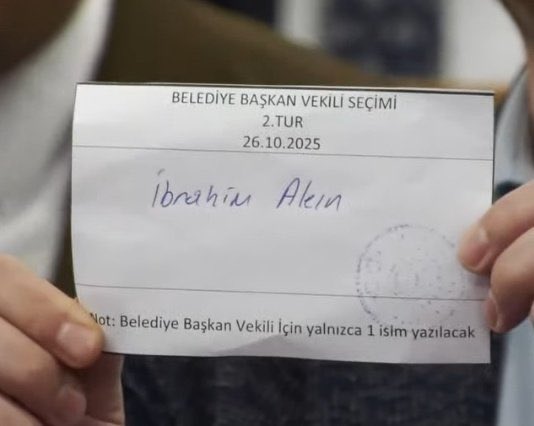 BELEDİYE BAŞKAN VEKİLİ SEÇİMİ
2.TUR
26.10.2025
İbrahim Akın
Not: Belediye Başkan Vekili İçin yalnızca 1 isim yazılacak